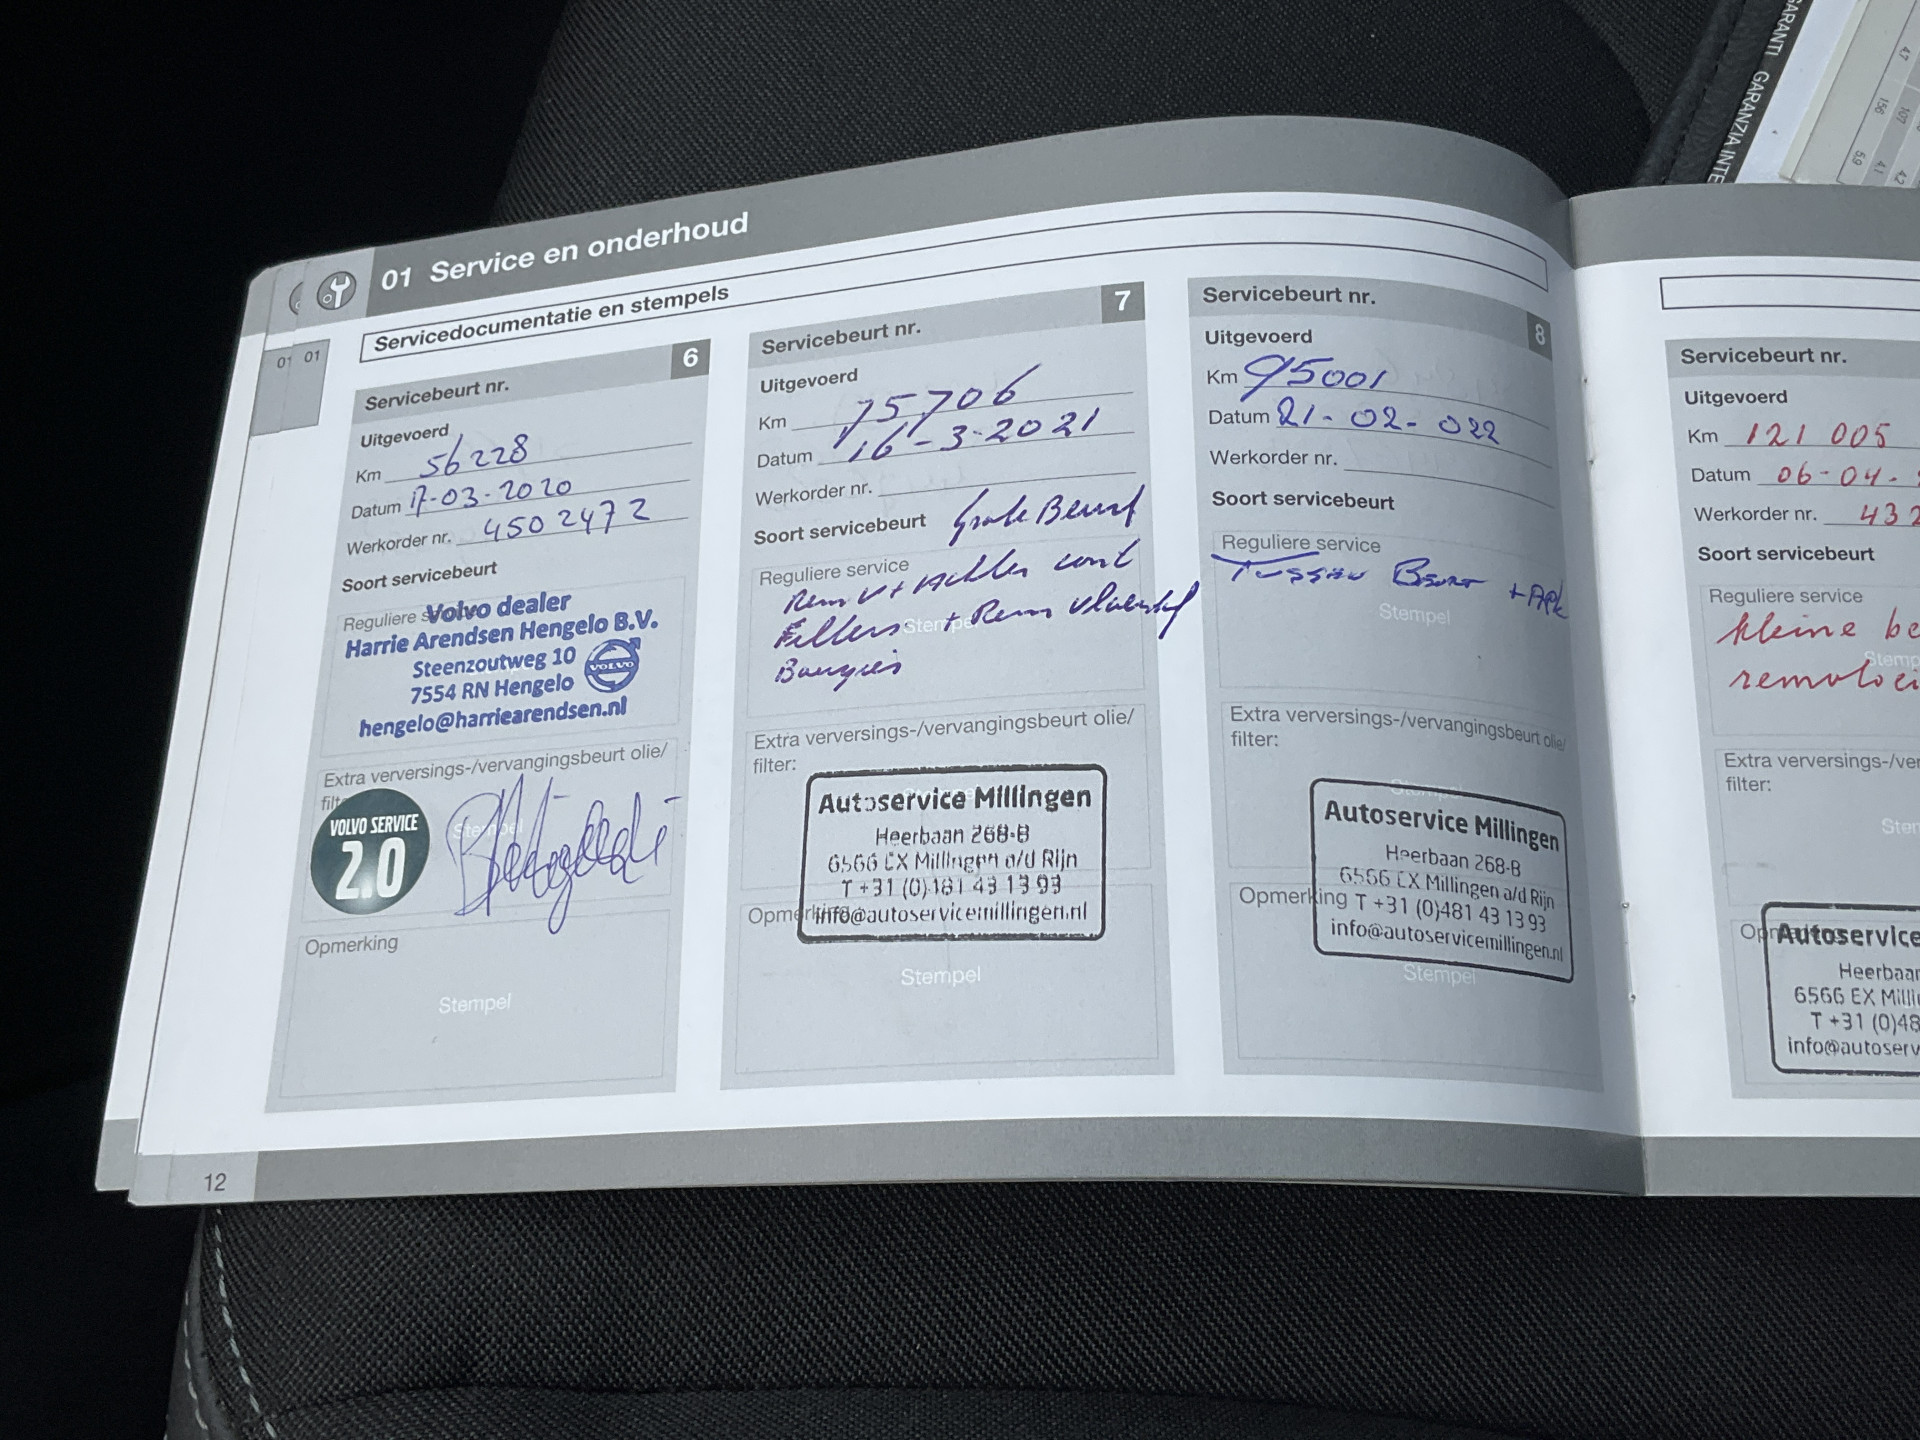 GARANTI GARANZIA INTE
47
156
107
5,9
4,1
42
01 Service en onderhoud
Servicedocumentatie en stempels
01
01
Servicebeurt nr.
6
Uitgevoerd
Km 56228
Datum 17-03-2020
Werkorder nr. 4502472
Soort servicebeurt
Reguliere
Volvo dealer
Harrie Arendsen Hengelo B.V.
Steenzoutweg 10
7554 RN Hengelo
VOLVO
hengelo@harriearendsen.nl
Extra verversings-/vervangingsbeurt olie/
filt
VOLVO SERVICE
2.0
Stempel
Opmerking
Stempel
Servicebeurt nr.
7
Uitgevoerd
Km 75706
Datum 16-3-2021
Werkorder nr.
Soort servicebeurt Grote Beurt
Reguliere service
Rem V + Achter cont
Filters + Rem vloeistof
Stempel
Bougies
Extra verversings-/vervangingsbeurt olie/
filter:
Autoservice Millingen
Heerbaan 268-B
6566 EX Millingen a/d Rijn
T +31 (0)481 43 13 93
Opmerking
info@autoservicemillingen.nl
Stempel
Servicebeurt nr.
8
Uitgevoerd
Km 95001
Datum 21-02-022
Werkorder nr.
Soort servicebeurt
Reguliere service
Tussen Beurt + APK
Stempel
Extra verversings-/vervangingsbeurt olie/
filter:
Stempel
Autoservice Millingen
Heerbaan 268-B
6566 EX Millingen a/d Rijn
Opmerking T +31 (0)481 43 13 93
info@autoservicemillingen.nl
Stempel
12
Servicebeurt nr.
Uitgevoerd
Km 121 005
Datum 06-04-
Werkorder nr. 432
Soort servicebeurt
Reguliere service
kleine be
Stemp
remvloei
Extra verversings-/ver
filter:
Ster
Autoservice
Heerbaan
6566 EX Milli
T +31 (0)48
info@autoserv